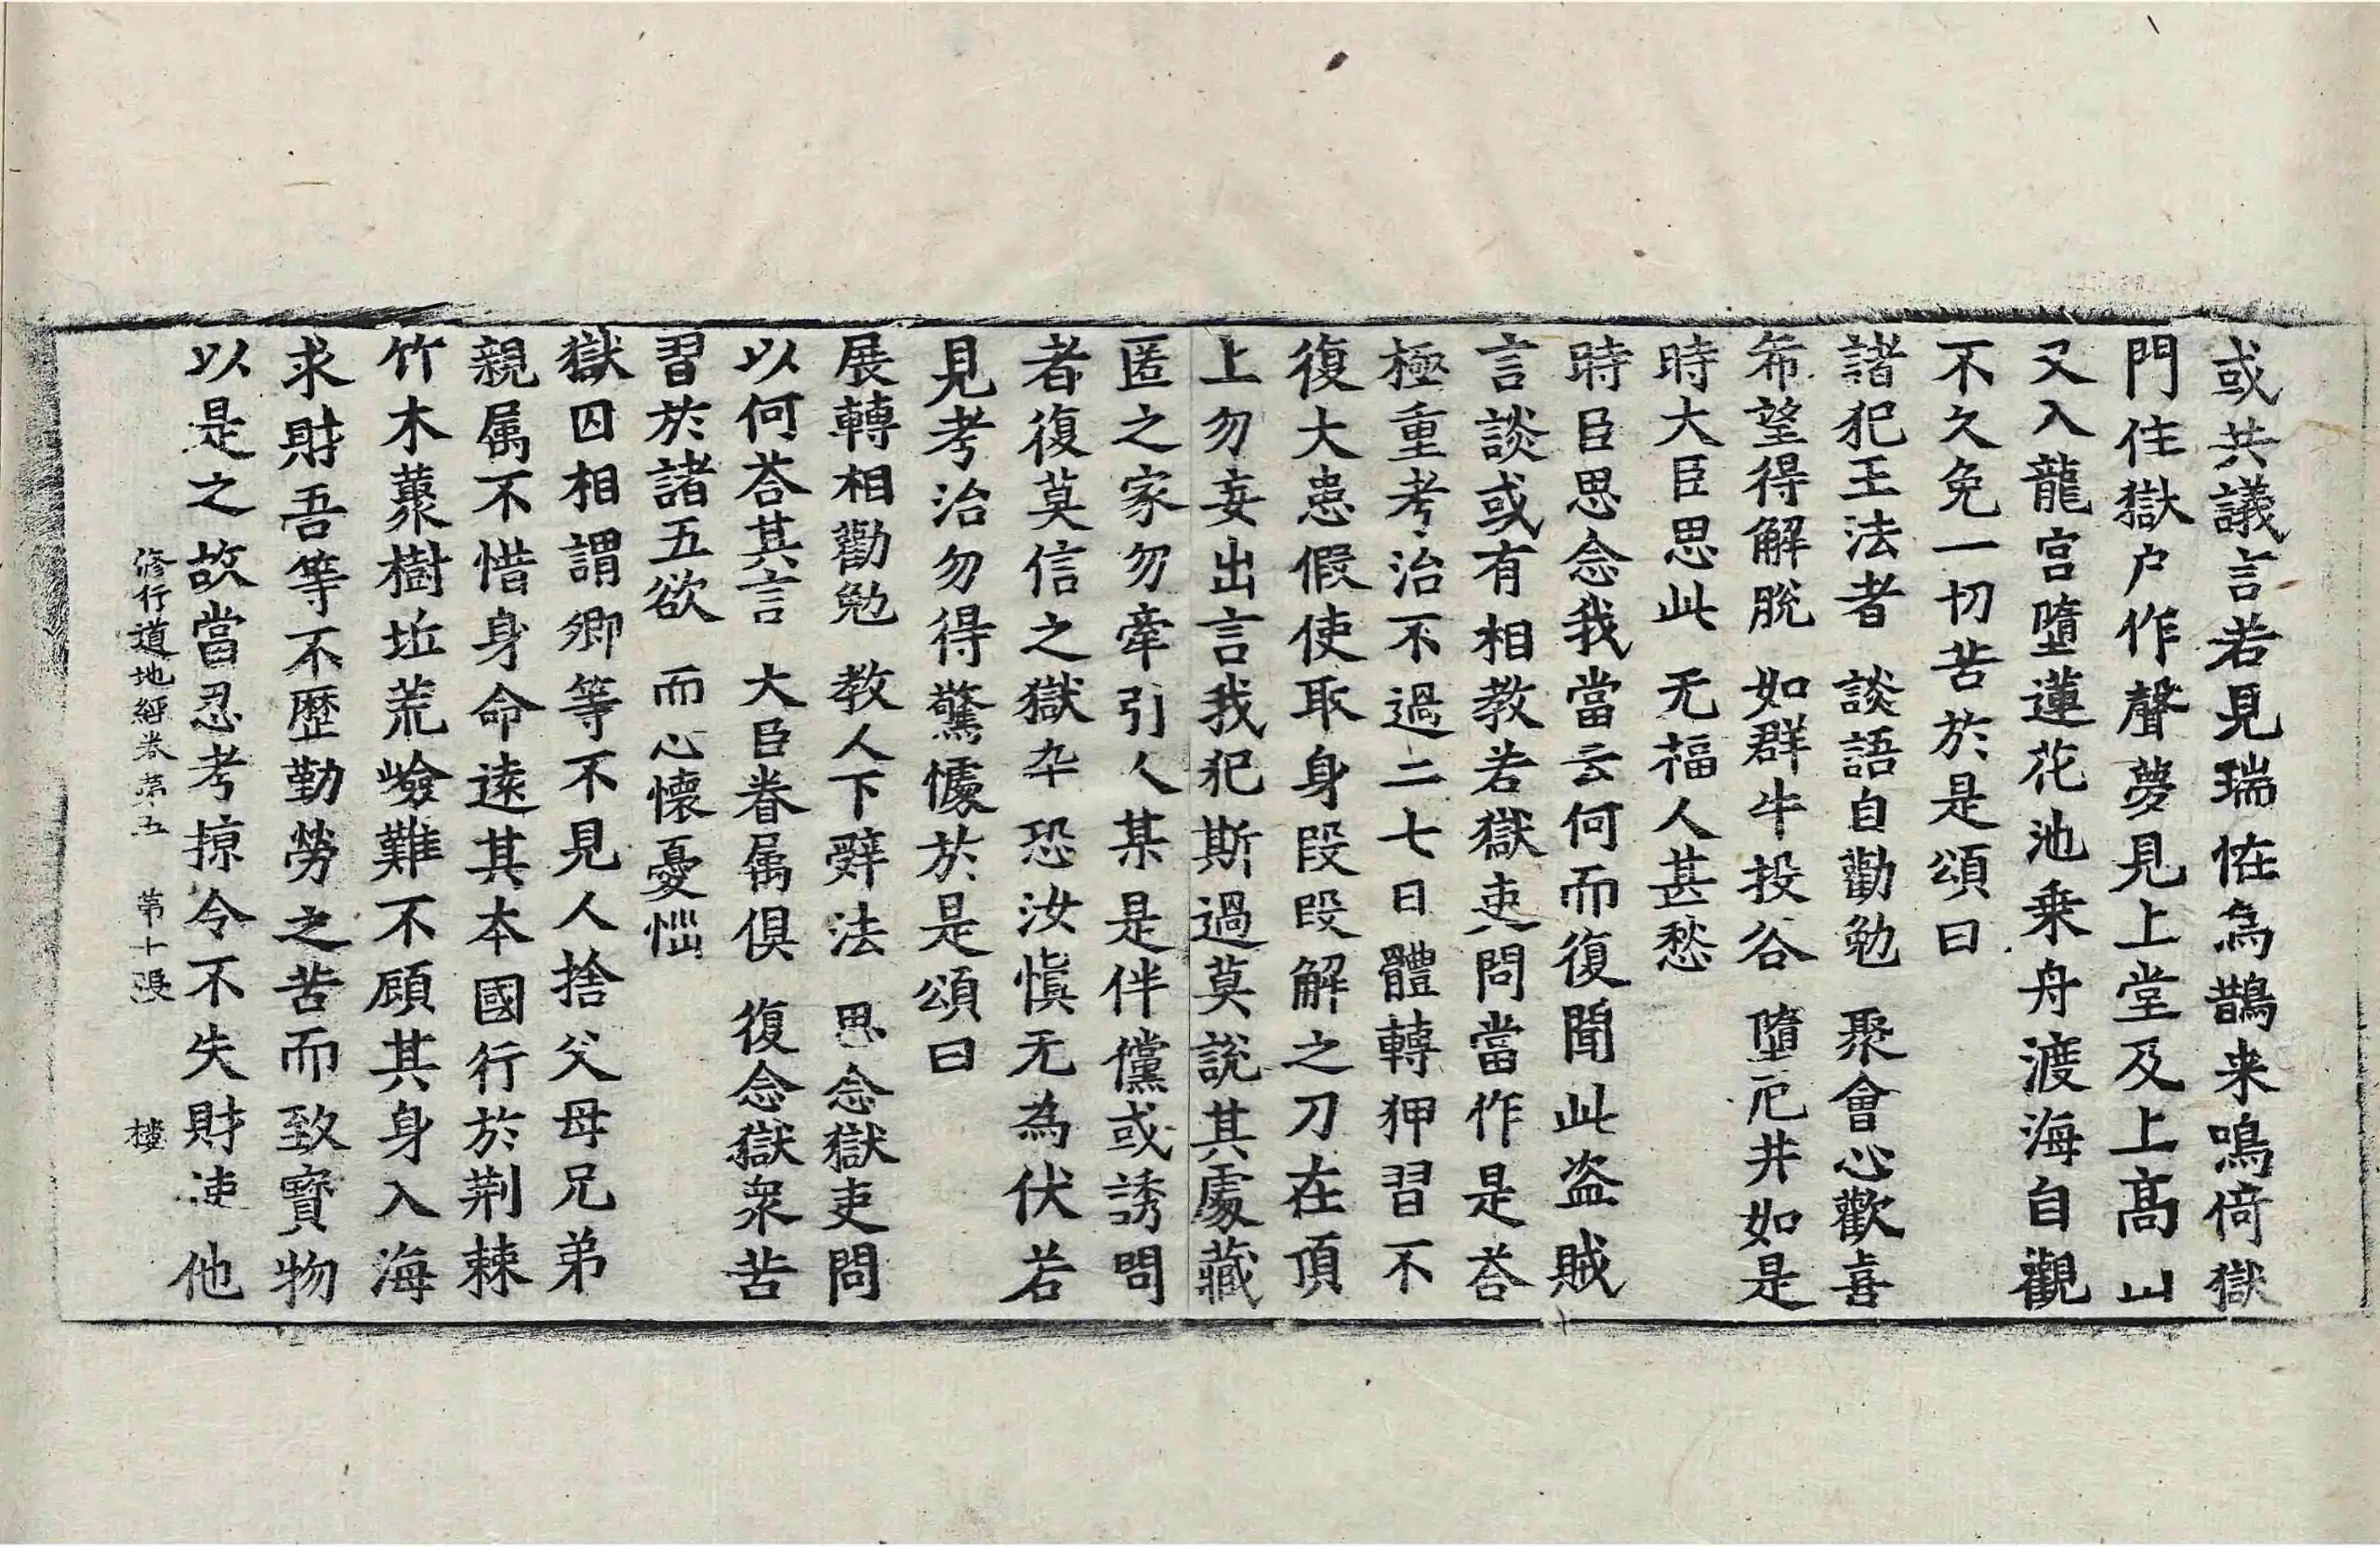 或共議言若見瑞恠為鵲来鳴倚獄
門住獄户作聲夢見上堂及上髙山
又入龍宮墮蓮花池乗舟渡海自觀
不久免一切苦於是頌曰
諸犯王法者　談語自勸勉　聚會心歡喜
希望得解脫　如群牛投谷　墮厄井如是
時大臣思此　无福人甚愁
時臣思念我當云何而復聞此盗賊
言談或有相教若獄吏問當作是荅
極重考治不過二七日體轉狎習不
復大患假使取身段段解之刀在頂
上勿妄出言我犯斯過莫說其處藏
匿之家勿牽引人某是伴儻或誘問
者復莫信之獄卒恐汝慎无為伏若
見考治勿得驚懅於是頌曰
展轉相勸勉　教人下辤法　思念獄吏問
以何荅其言　大臣眷属俱　復念獄衆苦
習於諸五欲　而心懷憂惱
獄囚相謂卿等不見人捨父母兄弟
親属不惜身命逺其本國行於荆棘
竹木藂樹坵荒嶮難不顧其身入海
求財吾等不歷勤勞之苦而致寳物
以是之故當忍考掠令不失財使他
修行道地經卷第五　第十張　樓